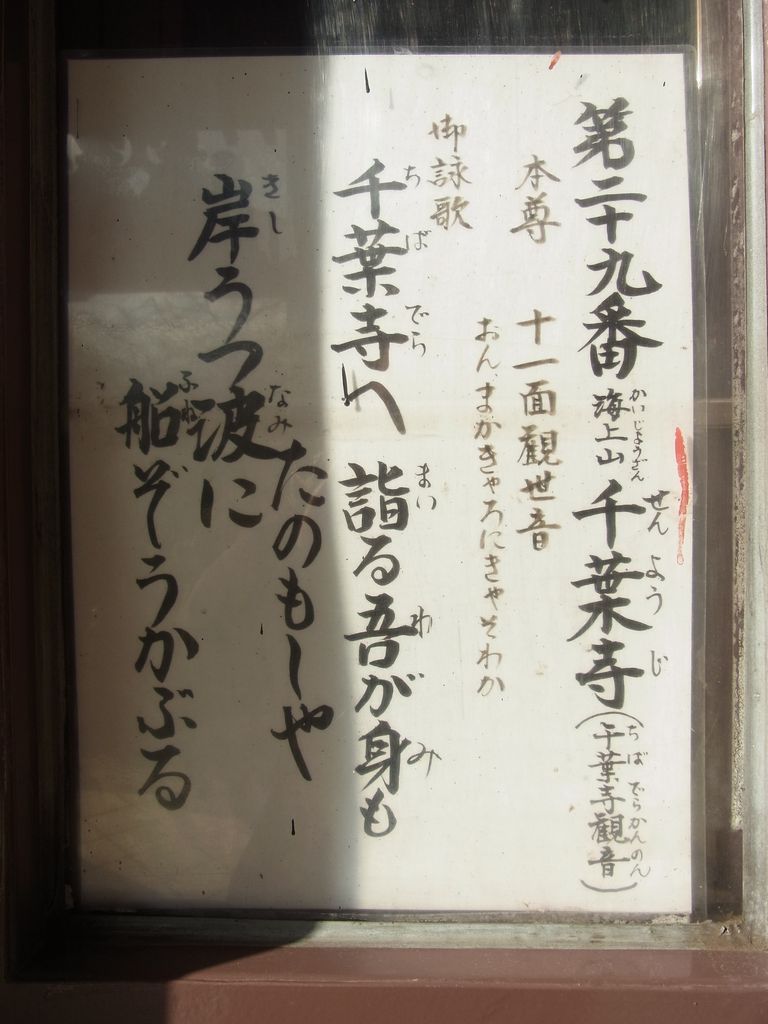 第二十九番 海上山 千葉寺(千葉寺觀音)
かいじょうざん せんようじ ちばでらかんのん
本尊 十一面觀世音
おんまかきゃろにきゃそわか
御詠歌
千葉寺へ 詣る吾が身も
ちばでら まい わ み
たのもしや
岸うつ波に
きし なみ
船ぞうかぶる
ふね